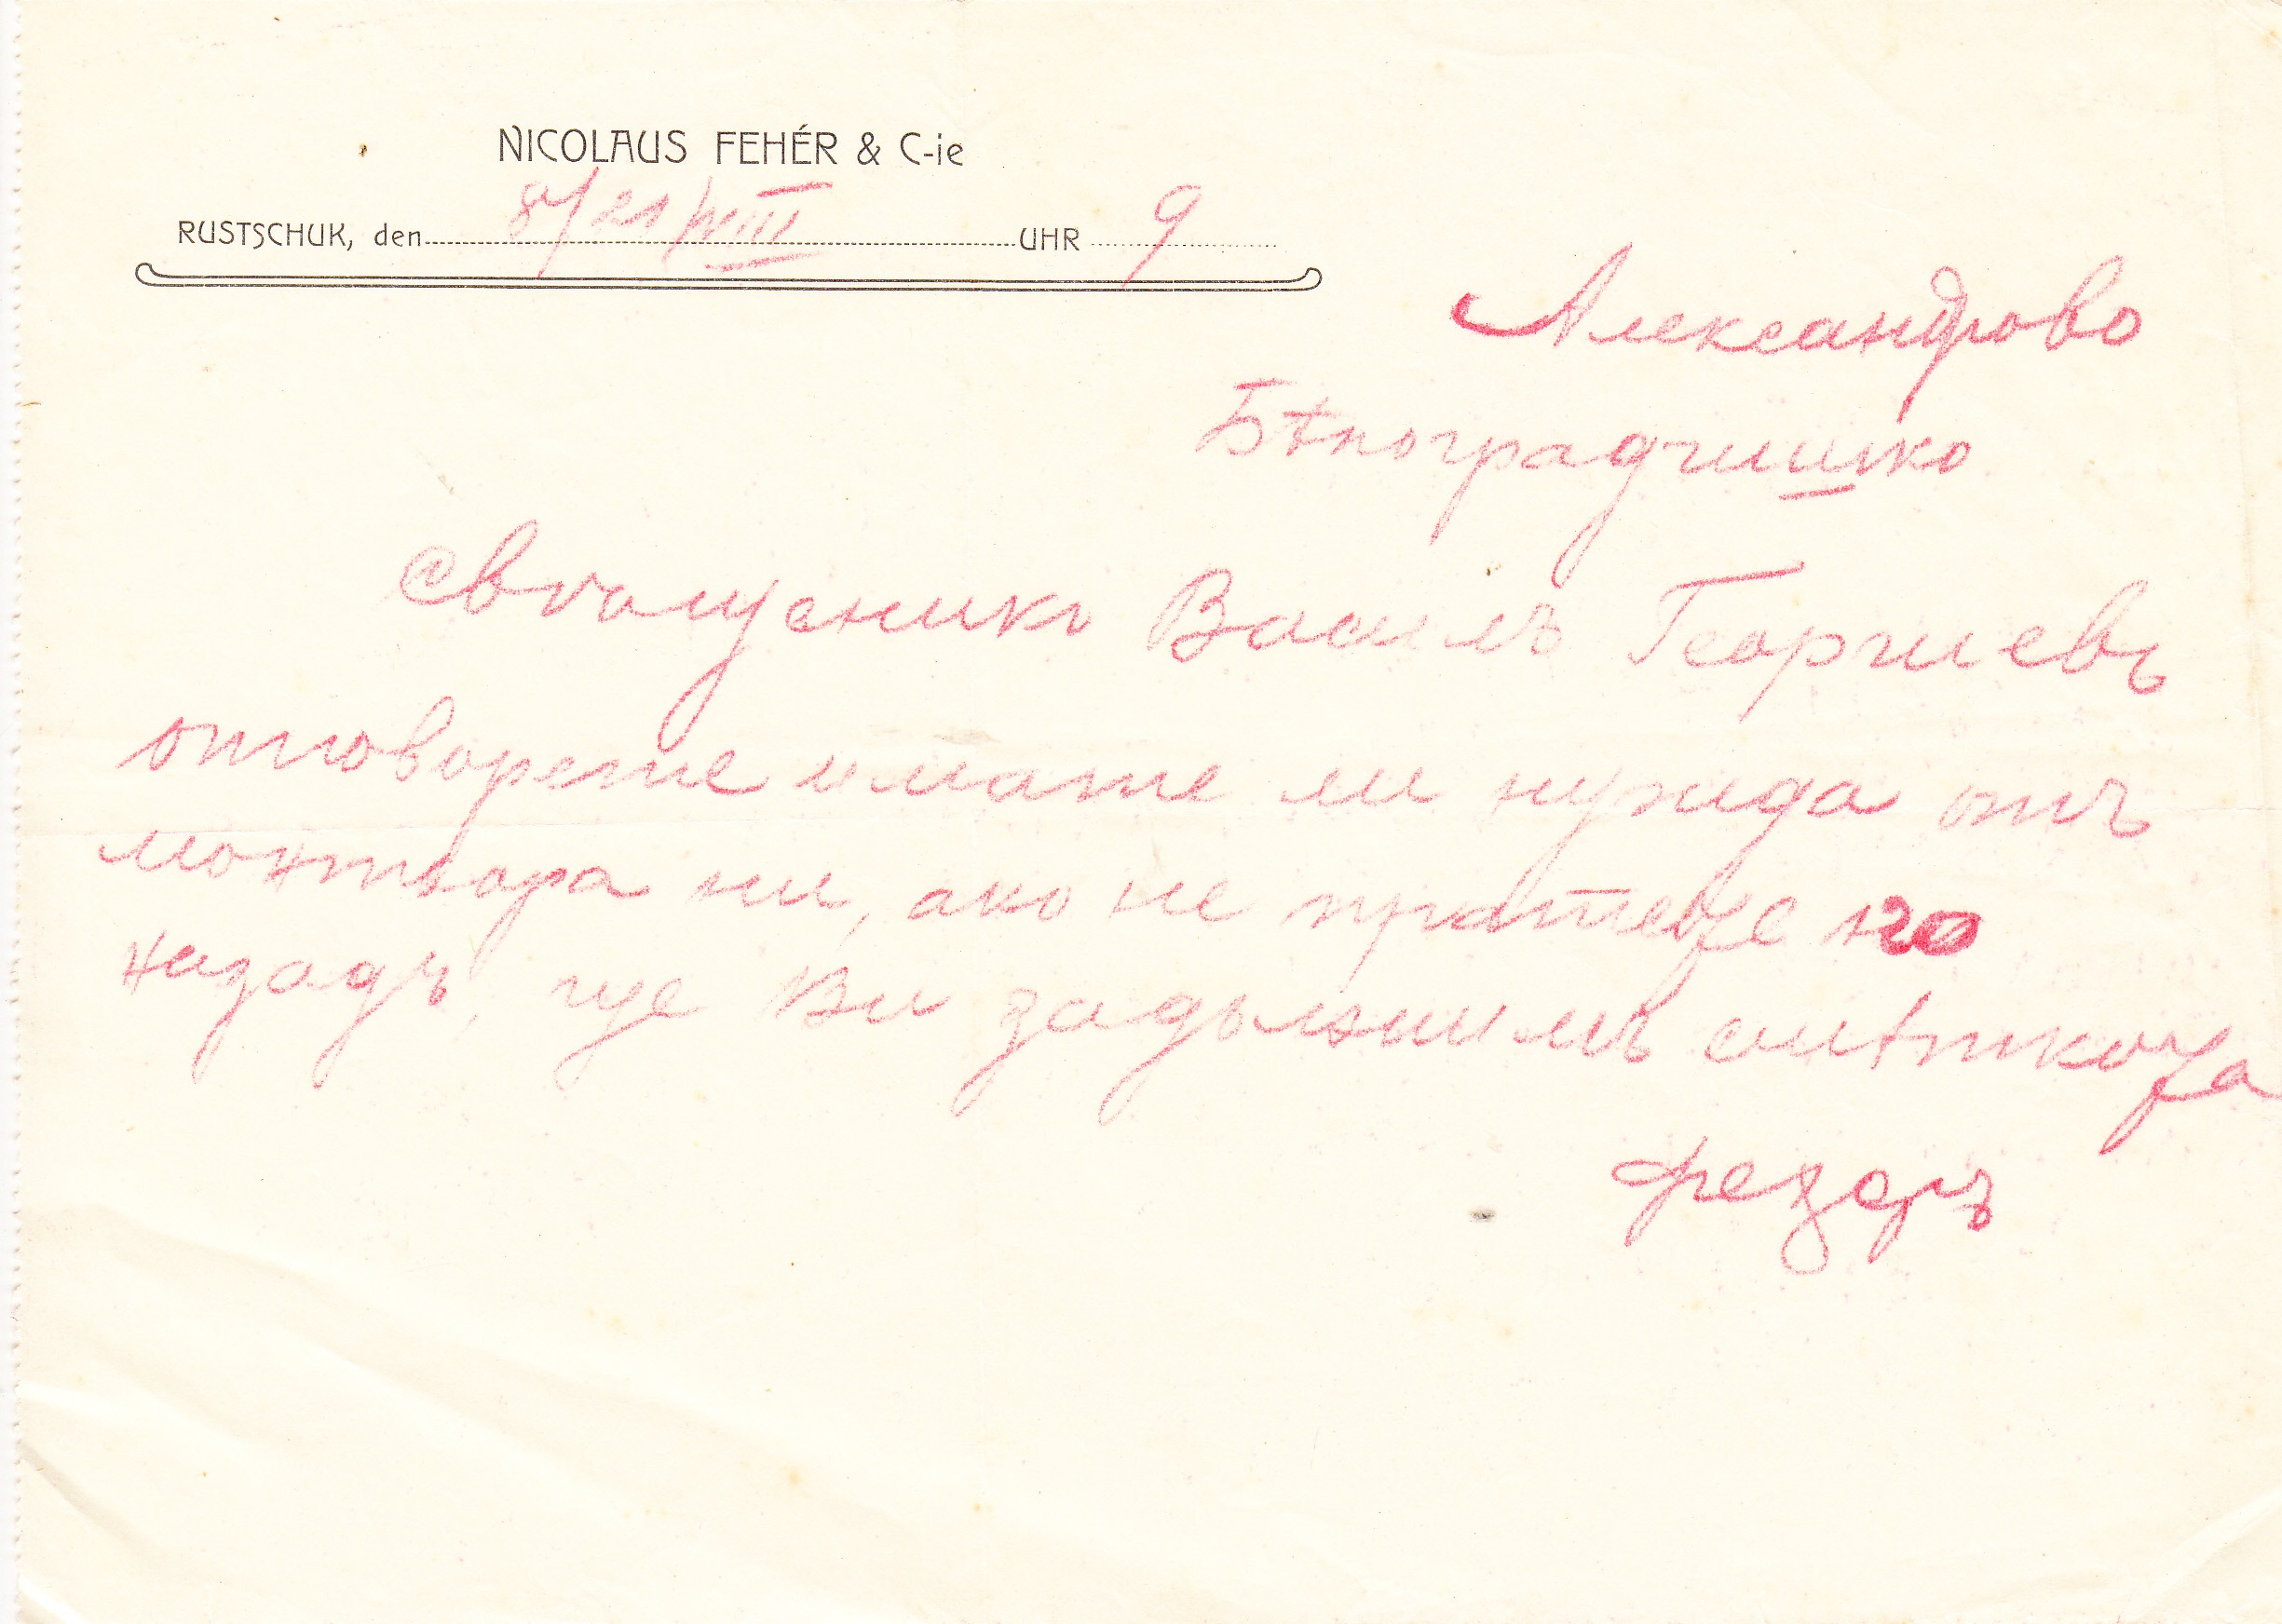 NICOLAUS FEHÉR & C-ie
RUSTSCHUK, den 8/21/VIII UHR 9
Александрово
Бѣлоградчишко
Священико Василъ Георгиевъ
отговорете имате ли нужда отъ
монтьора ни, ако не пратете го
назадъ, ще Ви задължимъ смѣтката
Фехеръ